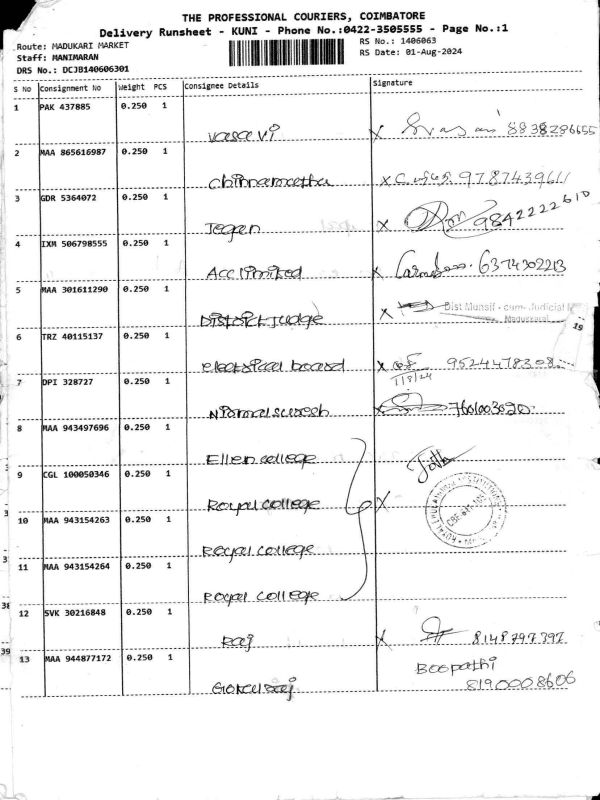 THE PROFESSIONAL COURIERS, COIMBATORE
Delivery Runsheet - KUNI - Phone No.:0422-3505555 - Page No.:1
Route: MADUKARI MARKET RS No.: 1406063
Staff: MANIMARAN RS Date: 01-Aug-2024
DRS No.: DCJB140606301
S No Consignment No Weight PCS Consignee Details Signature
1 PAK 437885 0.250 1
vasavi 8838286655
2 MAA 865616987 0.250 1
chinnamatha 9787439611
3 GDR 5364072 0.250 1
Jegan 9842222610
4 IXM 506798555 0.250 1
Acc limited 6374302213
5 MAA 301611290 0.250 1
District Judge Dist Munsif - cum- Judicial
6 TRZ 40115137 0.250 1
electrical board 9524478308
7 DPI 328727 0.250 1 1/8/24
Nirmal suresh 7601003020
8 MAA 943497696 0.250 1
Ellen college
9 CGL 100050346 0.250 1
Royal college X
10 MAA 943154263 0.250 1
Royal college
11 MAA 943154264 0.250 1
Royal college
12 SVK 30216848 0.250 1
Raj X 8148797397
13 MAA 944877172 0.250 1 Boopathi
Gokul raj 8190008606